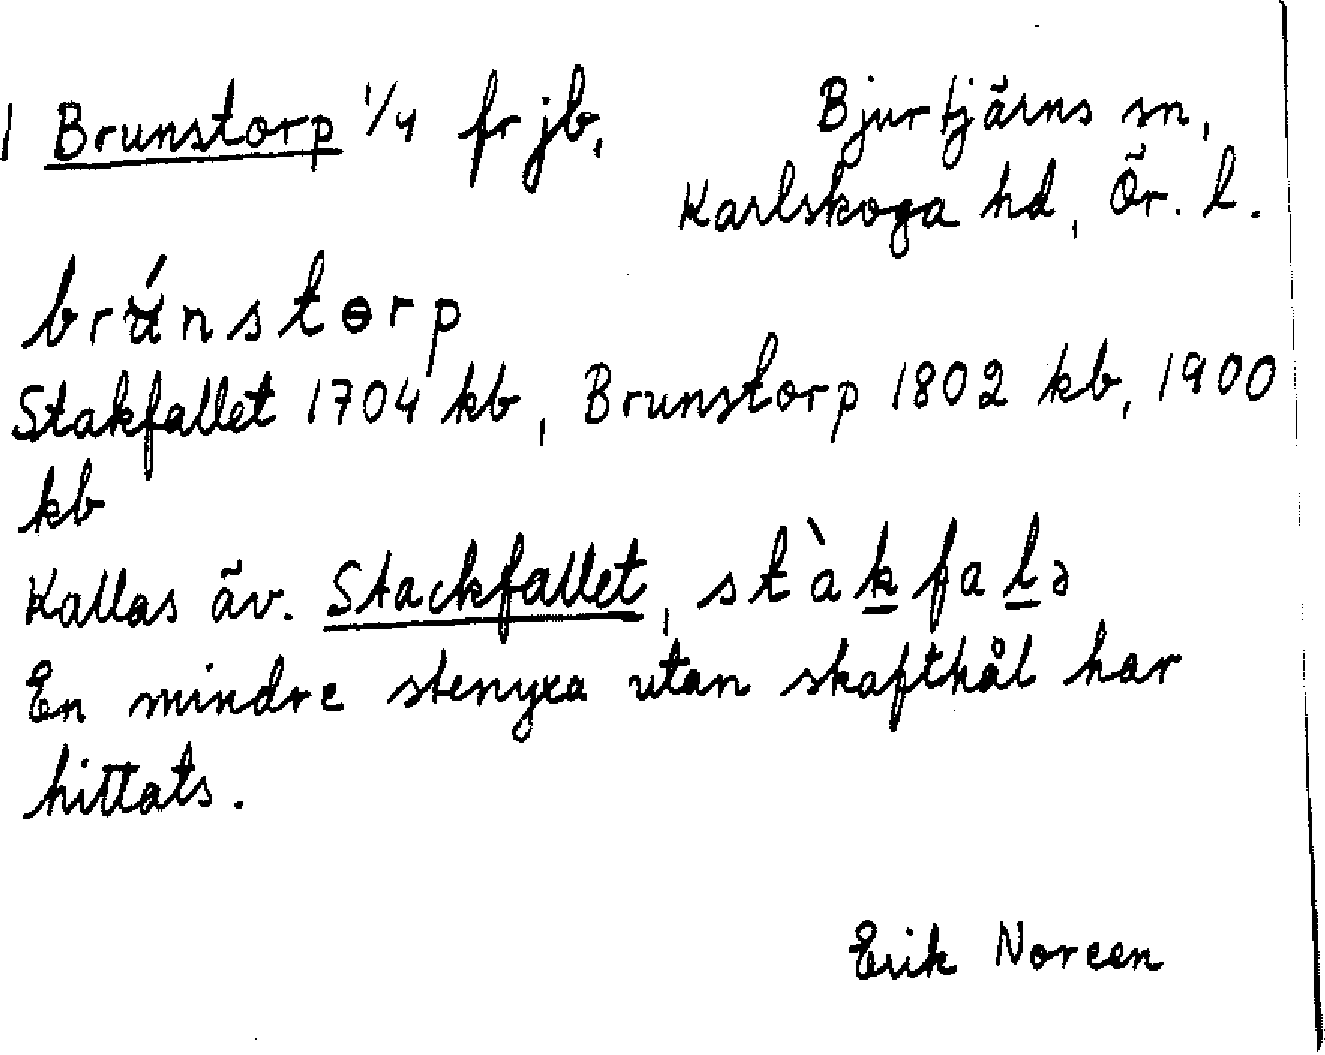 1 Brunstorp 1/4 fr jb, Bjurtjärns sn,
Karlskoga hd, Ör. l.
brʉ́nstɵrp
Stakfallet 1704 kb, Brunstorp 1802 kb, 1900
kb
Kallas äv. Stackfallet, stàkfalə
En mindre stenyxa utan skafthål har
hittats.
Erik Noreen